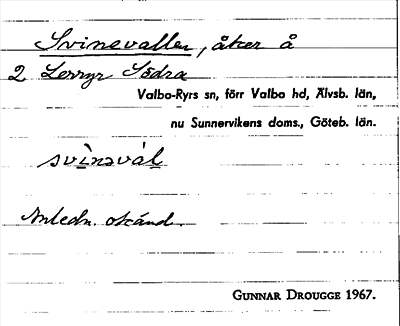 Svinevallen, åker å
2 Lerryr Södra
Valbo-Ryrs sn, förr Valbo hd, Älvsb. län,
nu Sunnervikens doms., Göteb. län.
svìnəvál
Anledn. okänd.
GUNNAR DROUGGE 1967.